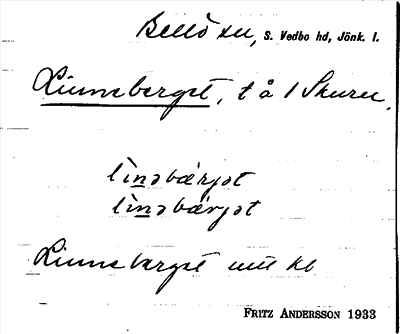 Bellö sn, S. Vedbo hd, Jönk. l.
Linneberget, t å 1 Skuru.
lìnəbær̀jət
lìnəbær̀jət
Linneberget utt kb
FRITZ ANDERSSON 1933